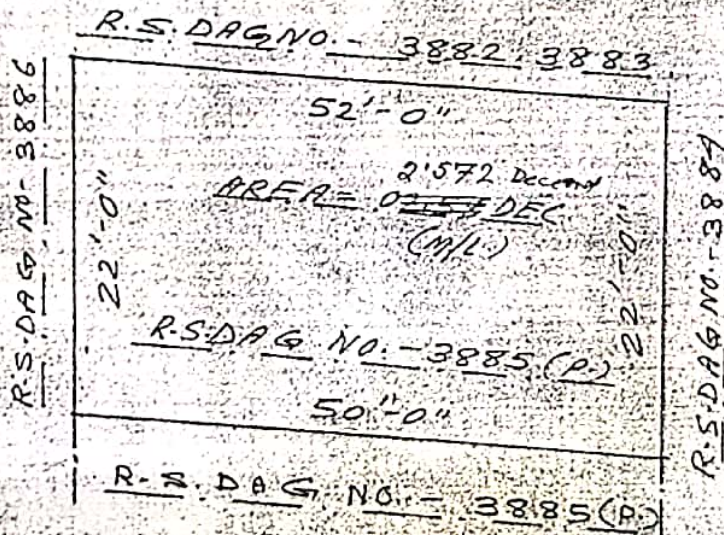 R.S. DAG NO. - 3882, 3883
R.S. DAG. NO- 3886
52'-0"
22'-0"
2.572 Decimal
AREA = DEC
(M/L.)
22'-0"
R.S. DAG NO.-3884
R.S. DAG NO. - 3885 (P.)
50'-0"
R.S. DAG NO. - 3885(P.)